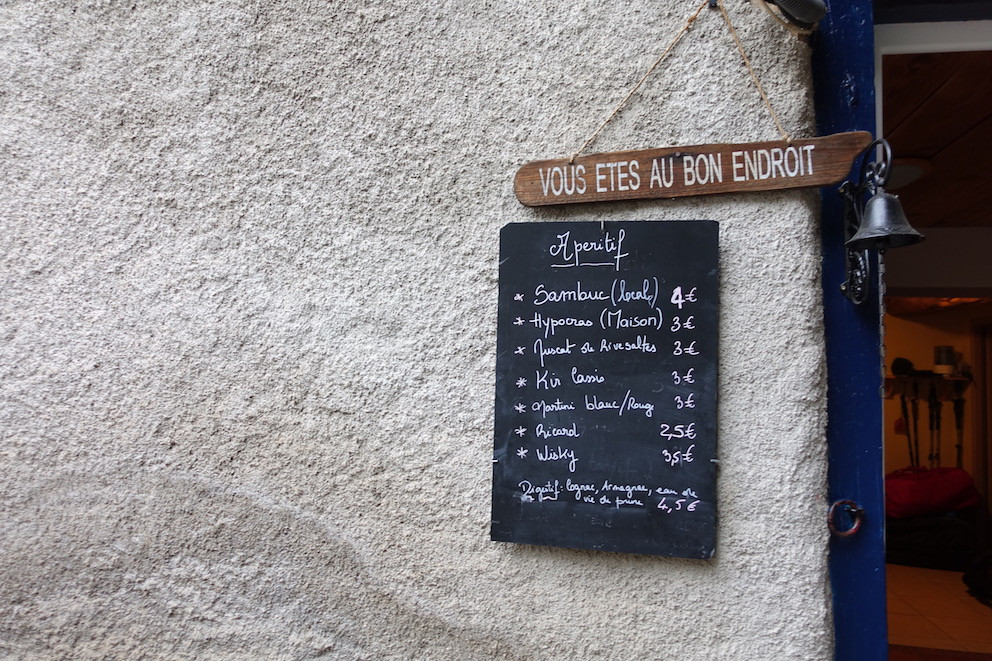 VOUS ETES AU BON ENDROIT
Aperitif
* Sambuc (local) 4€
* Hypocras (Maison) 3€
* Muscat de Rivesaltes 3€
* Kir Cassis 3€
* Martini blanc/Rouge 3€
* Ricard 2,5€
* Wisky 3,5€
Digestif: Cognac, Armagnac, eau de
vie de prune 4,5€